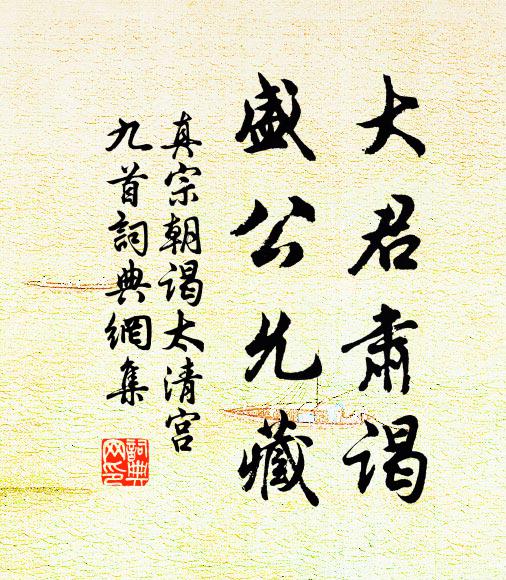 大君肅謁
盛公允藏
真宗朝謁太清宮
九首詞典網集
詞典
网印